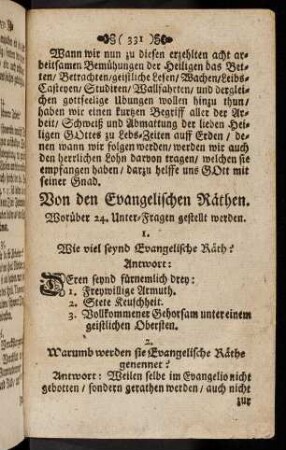 ( 331 )
Wann wir nun zu diesen erzehlten acht ar-
beitsamen Bemühungen der Heiligen das Bet-
ten/ Betrachten/geistliche Lesen/ Wachen/Leibs-
Casteyen/ Studiren/ Wallfahrten/ und derglei-
chen gottseelige Ubungen wollen hinzu thun/
haben wir einen kurtzen Begriff aller der Ar-
beit/ Schweiß und Abmattung der lieben Hei-
ligen GOttes zu Lebs-Zeiten auff Erden/ de-
nen wann wir folgen werden/werden wir auch
den herrlichen Lohn darvon tragen/ welchen sie
empfangen haben/ darzu helffe uns GOtt mit
seiner Gnad.
Von den Evangelischen Räthen.
Worüber 24. Unter-Fragen gestellt werden.
1.
Wie viel seynd Evangelische Räth?
Antwort:
DEren seynd fürnemlich drey:
1. Freywillige Armuth.
2. Stete Keuschheit.
3. Vollkommener Gehorsam unter einem
geistlichen Obersten.
2.
Warumb werden sie Evangelische Räthe
genennet?
Antwort: Weilen selbe im Evangelio nicht
gebotten/ sondern gerathen werden/ auch nicht
zur